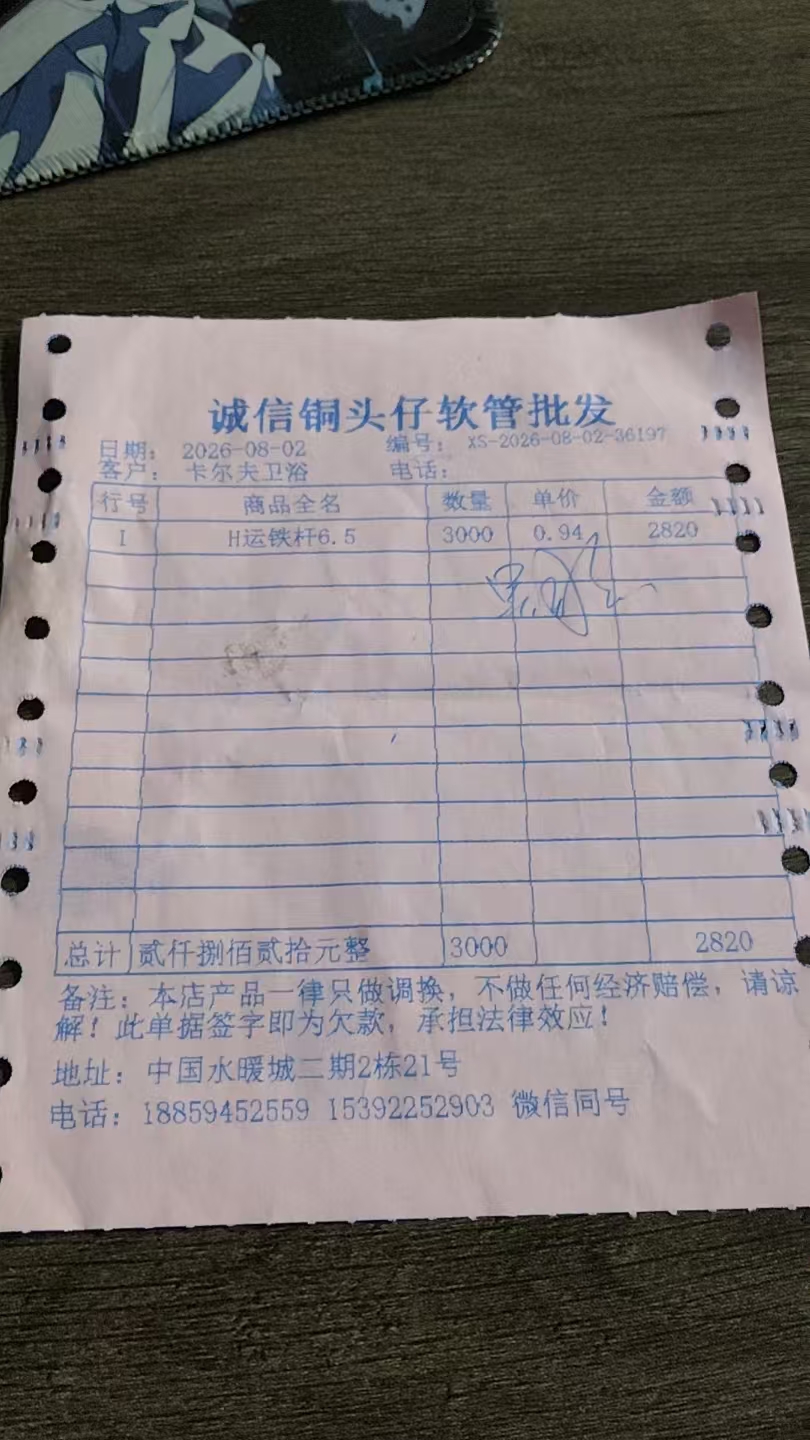 诚信铜头仔软管批发
日期： 2026-08-02 编号： XS-2026-08-02-36197
客户： 卡尔夫卫浴 电话：
行号 商品全名 数量 单价 金额
1 H运铁杆6.5 3000 0.94 2820
总计 贰仟捌佰贰拾元整 3000 2820
备注：本店产品一律只做调换，不做任何经济赔偿，请谅
解！此单据签字即为欠款，承担法律效应！
地址：中国水暖城二期2栋21号
电话：18859452559 15392252903 微信同号